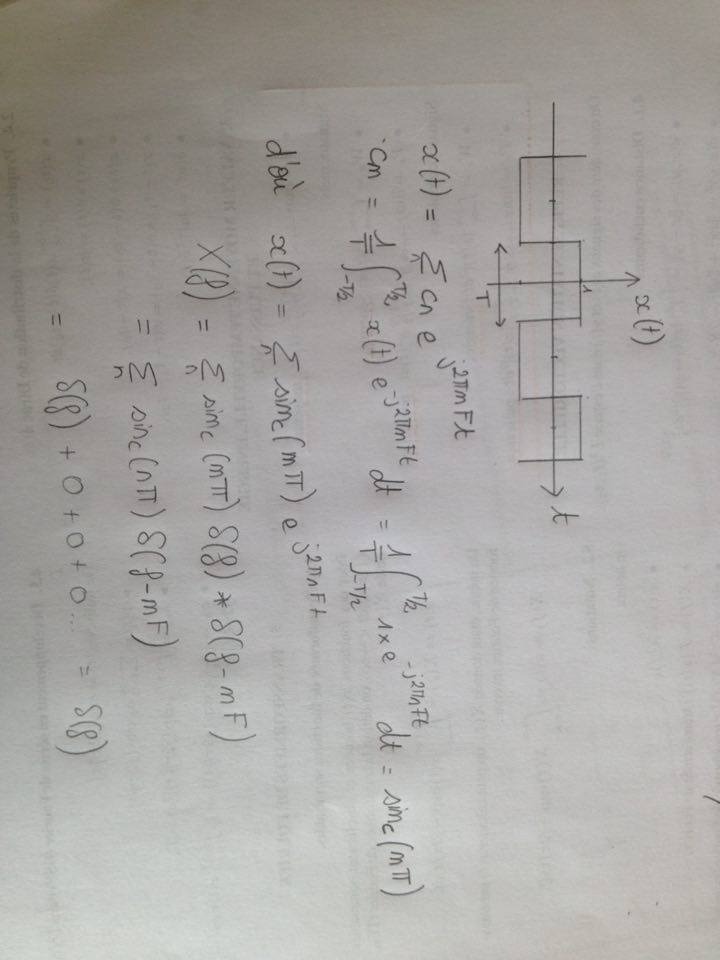 x(t)
1
t
T
x(t) = Σn cn e^{j2πnFt}
cn = 1/T ∫_{-T/2}^{T/2} x(t) e^{-j2πnFt} dt = 1/T ∫_{-T/2}^{T/2} 1 x e^{-j2πnFt} dt = sinc(nπ)
d'où x(t) = Σn sinc(nπ) e^{j2πnFt}
X(f) = Σn sinc(nπ) δ(f) * δ(f-nF)
= Σn sinc(nπ) δ(f-nF)
= δ(f) + 0 + 0 + 0... = δ(f)